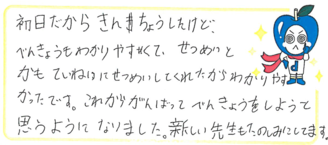 初日だから きんちょうしたけど、
べんきょうもわかりやすくて、せつめいと
かも ていねいにせつめいしてくれたからわかりやす
かったです。これからがんばって べんきょうをしようと
思うように なりました。新しい先生もたのしみにしてます。